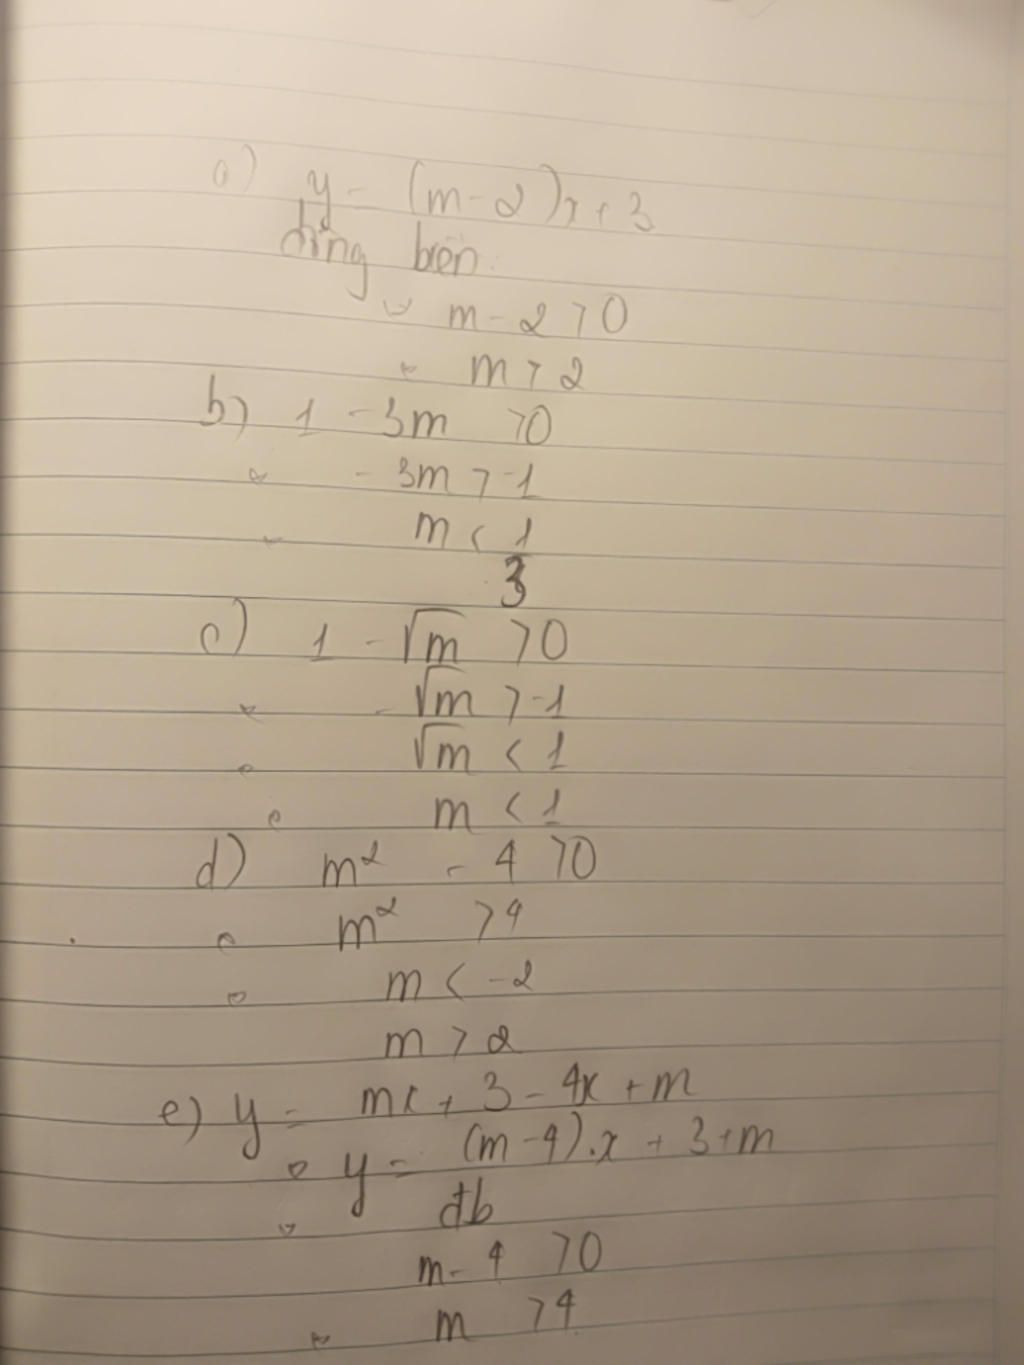 a) y = (m-2)x+3
đồng biến:
m-2 >0
m > 2
b) 1 -3m >0
-3m > -1
m < 1
3
c) 1 - √m >0
- √m > -1
√m < 1
m < 1
d) m² - 4 >0
m² >4
m < -2
m > 2
e) y = mx + 3 - 4x + m
y = (m-4).x + 3+m
đb
m- 4 >0
m >4